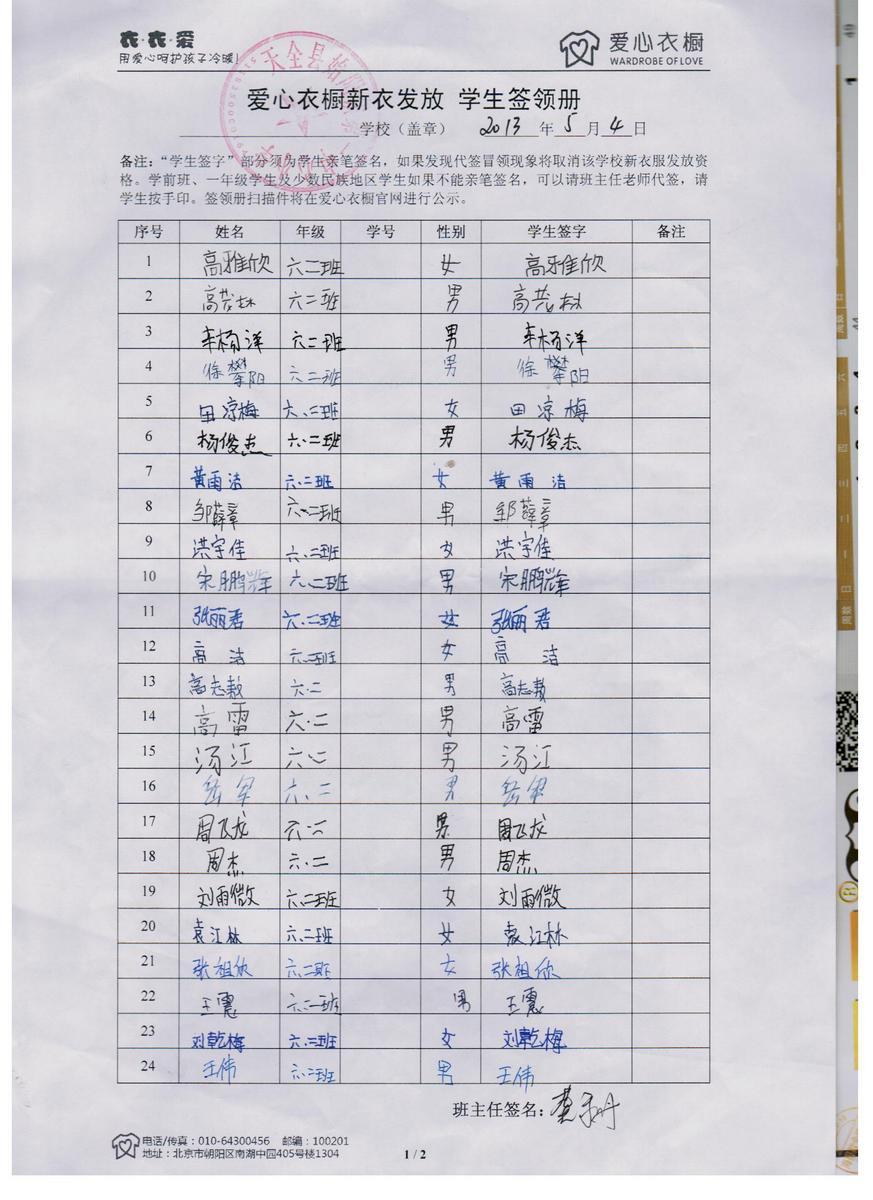 衣·衣·爱
用爱心呵护孩子冷暖!
爱心衣橱
WARDROBE OF LOVE
天全县始阳
爱心衣橱新衣发放 学生签领册
学校（盖章） 2013 年 5 月 4 日
备注：“学生签字”部分须为学生亲笔签名，如果发现代签冒领现象将取消该学校新衣服发放资
格。学前班、一年级学生及少数民族地区学生如果不能亲笔签名，可以请班主任老师代签，请
学生按手印。签领册扫描件将在爱心衣橱官网进行公示。
序号 姓名 年级 学号 性别 学生签字 备注
1 高雅欣 六二班 女 高雅欣
2 高茂林 六二班 男 高茂林
3 牟杨洋 六二班 男 牟杨洋
4 徐攀阳 六二班 男 徐攀阳
5 田凉梅 六.二班 女 田凉梅
6 杨俊杰 六.二班 男 杨俊杰
7 黄雨洁 六.二班 女 黄雨洁
8 邹薛章 六.二班 男 邹薛章
9 洪宇佳 六.二班 女 洪宇佳
10 宋鹏辉 六.二班 男 宋鹏辉
11 张丽君 六.二班 女 张丽君
12 高洁 六.二班 女 高洁
13 高志敖 六.二 男 高志敖
14 高雷 六.二 男 高雷
15 汤江 六.二 男 汤江
16 六.二 男
17 周飞龙 六.二 男 周飞龙
18 周杰 六.二 男 周杰
19 刘雨微 六.二班 女 刘雨微
20 袁江林 六.二班 女 袁江林
21 张祖欣 六.二班 女 张祖欣
22 王震 六.二班 男 王震
23 刘乾梅 六.二班 女 刘乾梅
24 王伟 六.二班 男 王伟
班主任签名：
电话/传真：010-64300456 邮编：100201
地址：北京市朝阳区南湖中园405号楼1304
1 / 2